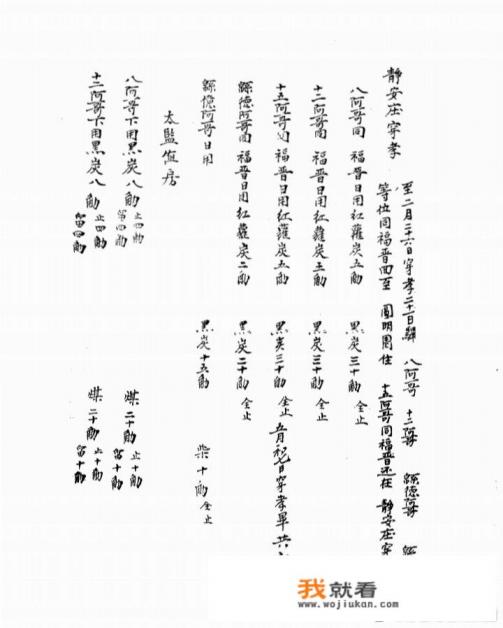 靜安庄穿孝
至二月二十六日穿孝二十一日 八阿哥 十二阿哥 綿德阿哥
等位同福晋回至 圓明園住 十五阿哥同福晋还在 靜安庄穿
八阿哥同 福晋日用红籮炭五觔 黑炭三十觔 仝止
十二阿哥同 福晋日用红籮炭五觔 黑炭三十觔 仝止
十五阿哥同 福晋日用红籮炭五觔 黑炭三十觔 仝止 五月初七日穿孝畢共
綿德阿哥同 福晋日用红籮炭二觔 黑炭二十觔 仝止
綿億阿哥日用 黑炭十五觔 柴十觔 仝止
太監值房
八阿哥下用黑炭八觔 止四觔 留四觔 煤二十觔 止十觔 留十觔
十二阿哥下用黑炭八觔 止四觔 留四觔 煤二十觔 止十觔 留十觔
我就看
www.wojiukan.com